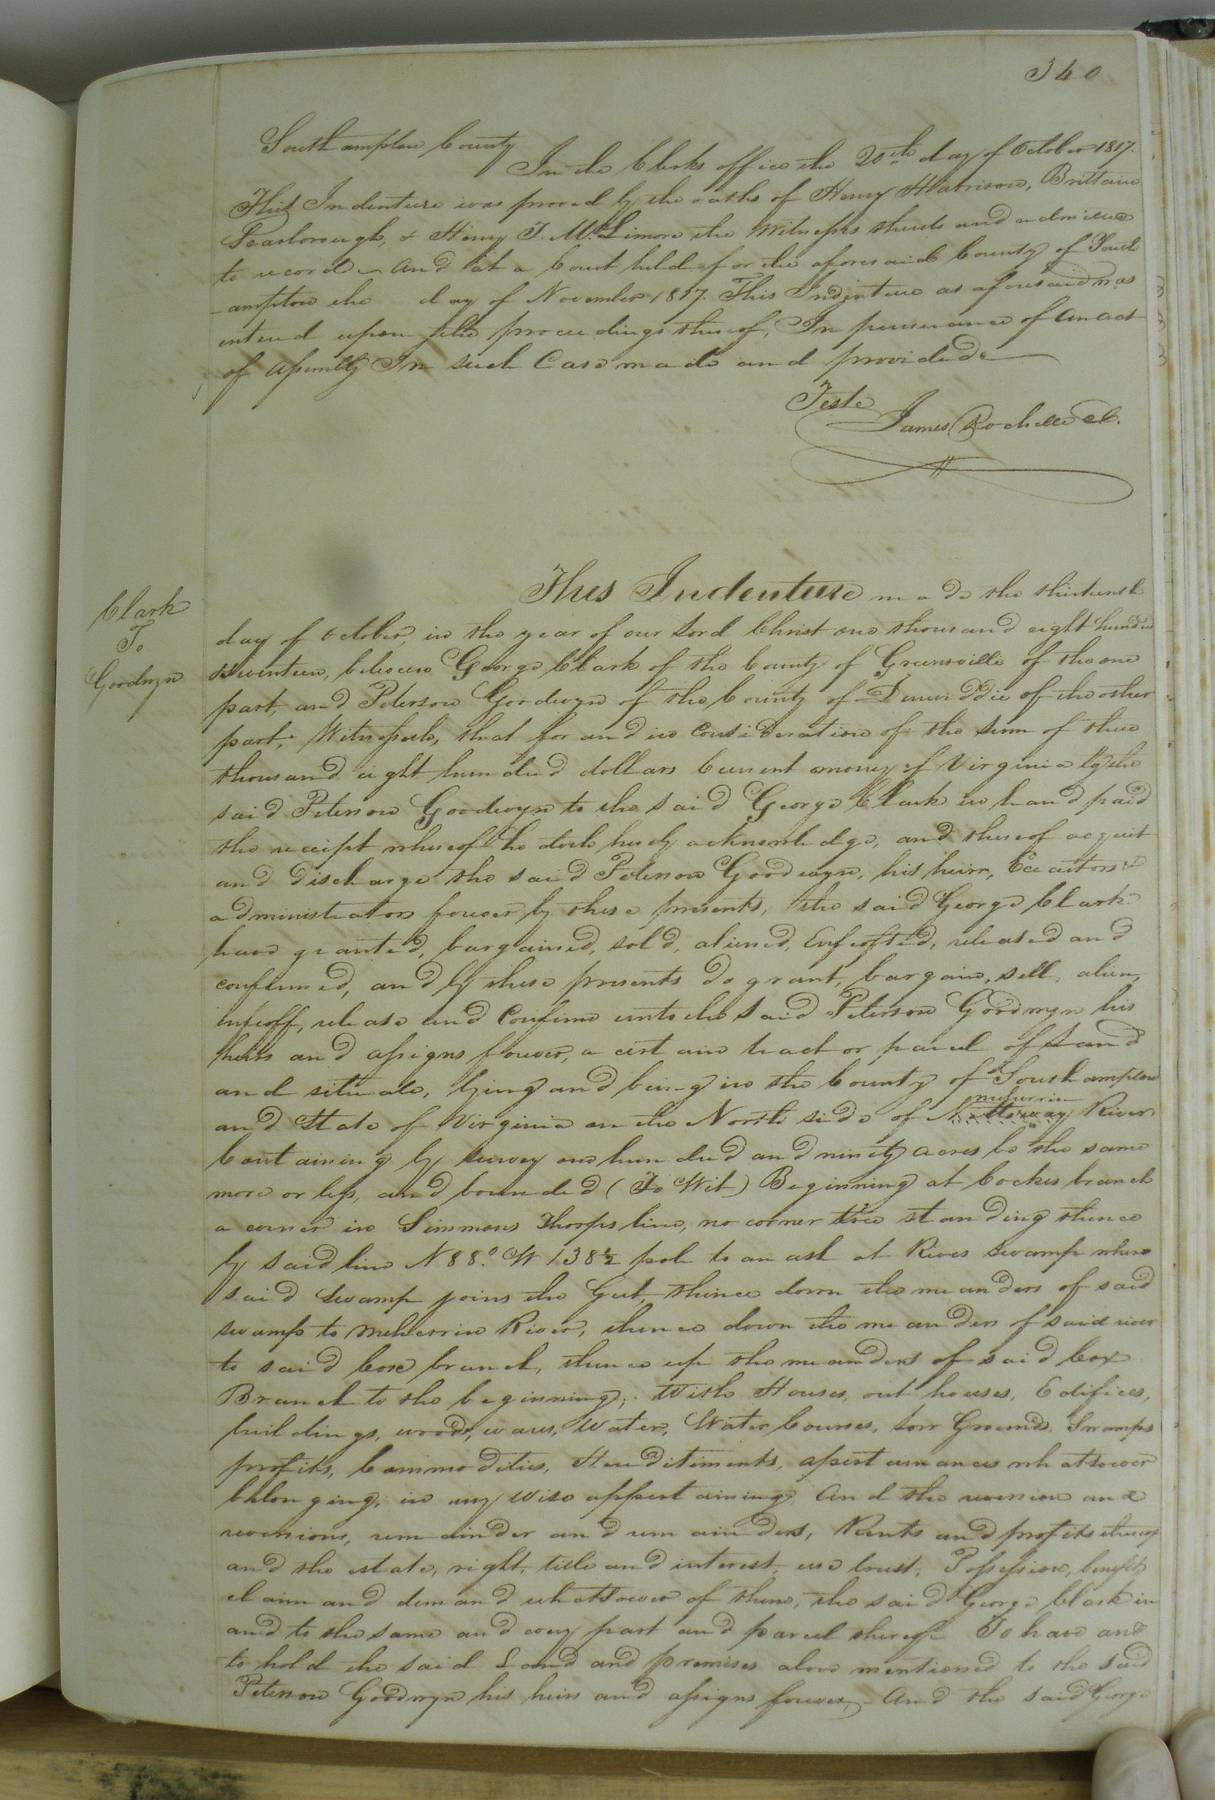 340
Southampton County
In the Clerks office the 20th day of October 1817.
This Indenture was proved by the oaths of Henry Harrison, Brittain
Scarborough, & Henry J. McLimore the Witnesses thereto and admitted
to record - And at a Court held for the aforesaid County of South
-ampton the day of November 1817. This Indenture as aforesaid was
entered upon the proceedings thereof, In pursuance of an act
of Assembly In such Case made and provided
Teste
James Rochelle Cl.
Clark
To
Goodwyn
This Indenture made the thirteenth
day of October, in the year of our Lord Christ one thousand eight hundred
seventeen, between George Clark of the County of Greensville of the one
part, and Peterson Goodwyn of the County of Dinwiddie of the other
part, Witnesseth, that for and in Consideration of the sum of three
thousand eight hundred dollars Current money of Virginia by the
said Peterson Goodwyn to the said George Clark in hand paid
the receipt whereof he doth hereby acknowledge, and thereof acquit
and discharge the said Peterson Goodwyn, his heirs, Executors &
administrators forever by these presents, the said George Clark
have granted, bargained, sold, aliened, Enfeofted, released and
confirmed, and by these presents do grant, bargain, sell, alien,
infeoff, release and Confirm unto the said Peterson Goodwyn his
heirs and assigns forever, a certain tract or parcel of Land
and situate, lying and being in the County of Southampton
meherrin
and State of Virginia on the North side of Nottoway River
Containing by survey one hundred and ninety acres be the same
more or less, and bounded (To Wit) Beginning at Cockes branch
a corner in Simmons Thorps line, no corner tree standing thence
by said line N 88.° W 138½ pole to an ash at Rives swamp where
said Swamp joins the Gut, thence down the meanders of said
swamp to Meherrin River, thence down the meanders of said river
to said Cox branch, thence up the meanders of said Cox
Branch to the beginning; With Houses, out houses, Edifices,
buildings, woods, ways, Water, Water Courses, low Grounds, Swamps
profits, Commodities, Hereditiments, apertenances whatsoever
belonging, in any wise appertaining And the reversion and
reversions, remainder and remainders, Rents and profits thereof
and the estate, right, title and interest, use trust, Possession, benefit,
claim and demand whatsoever of them, the said George Clark in
and to the same and every part and parcel thereof To have and
to hold the said Land and premises above mentioned to the said
Peterson Goodwyn his heirs and assigns forever, And the said George